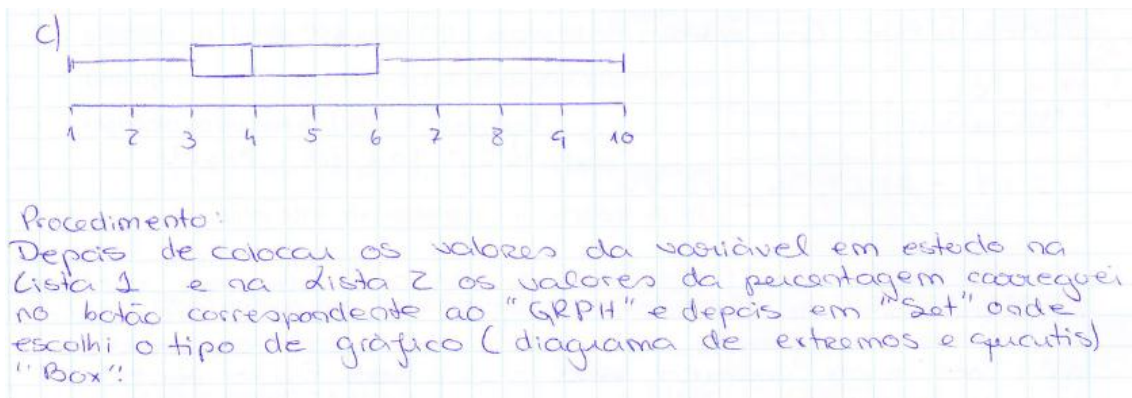 c)
1 2 3 4 5 6 7 8 9 10
Procedimento:
Depois de colocar os valores da variável em estudo na
Lista 1 e na Lista 2 os valores da percentagem carreguei
no botão correspondente ao "GRPH" e depois em "Set" onde
escolhi o tipo de gráfico (diagrama de extremos e quartis)
"Box".